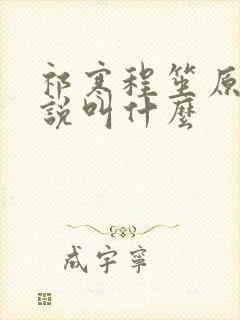 祁寒程笙原
說叫什麼
成宇寧